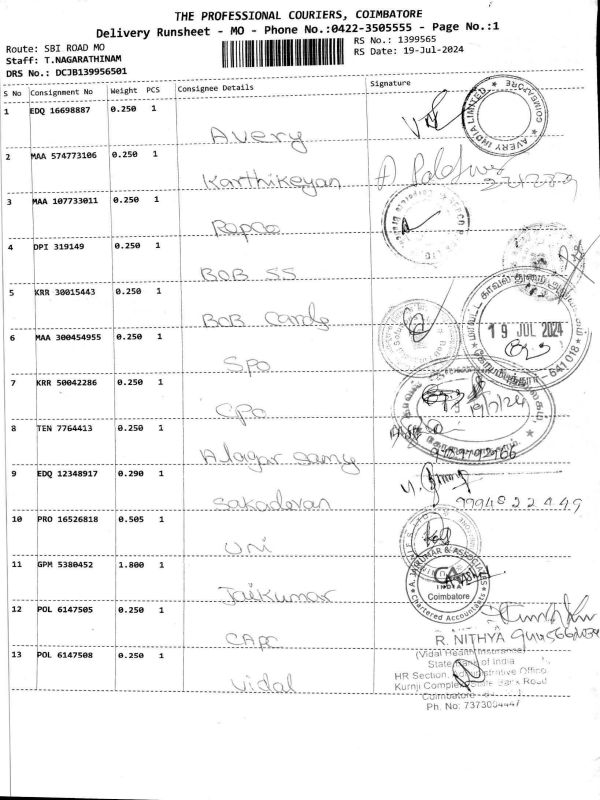 THE PROFESSIONAL COURIERS, COIMBATORE
Delivery Runsheet - MO - Phone No.:0422-3505555 - Page No.:1
Route: SBI ROAD MO
Staff: T.NAGARATHINAM
DRS No.: DCJB139956501
RS No.: 1399565
RS Date: 19-Jul-2024
S No Consignment No Weight PCS Consignee Details Signature
1 EDQ 16698887 0.250 1
Avery
AVERY INDIA LIMITED * COIMBATORE *
2 MAA 574773106 0.250 1
Karthikeyan
3 MAA 107733011 0.250 1
Ropco
4 DPI 319149 0.250 1
BOB SS
5 KRR 30015443 0.250 1
BOB Cards
19 JUL 2024
641018
6 MAA 300454955 0.250 1
SPO
7 KRR 50042286 0.250 1
CPO
19/7/24
8 TEN 7764413 0.250 1
Alagar Samy
9 EDQ 12348917 0.290 1
Sakadevan
9994822449
10 PRO 16526818 0.505 1
UNI
11 GPM 5380452 1.800 1
Jaikumar
A. JAIKUMAR & ASSOCIATES
CA
INDIA
Coimbatore
Chartered Accountants
12 POL 6147505 0.250 1
CAPC
13 POL 6147508 0.250 1
Vidal
R. NITHYA
(Vidal Health Insurance)
State Bank of India
HR Section, Administrative Office
Kurnji Complex, State Bank Road
Coimbatore
Ph. No: 7373004447